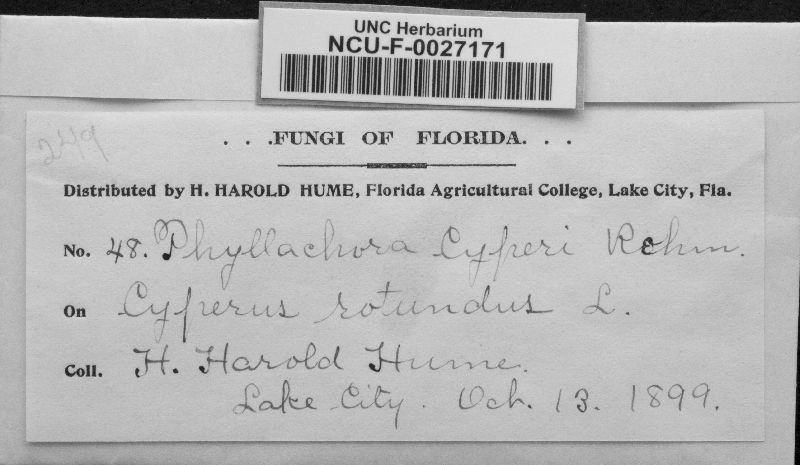 UNC Herbarium
NCU-F-0027171
249
. . .FUNGI OF FLORIDA. . .
Distributed by H. HAROLD HUME, Florida Agricultural College, Lake City, Fla.
No. 48. Phyllachora Cyperi Rehm.
On Cyperus rotundus L.
Coll. H. Harold Hume.
Lake City. Oct. 13. 1899.